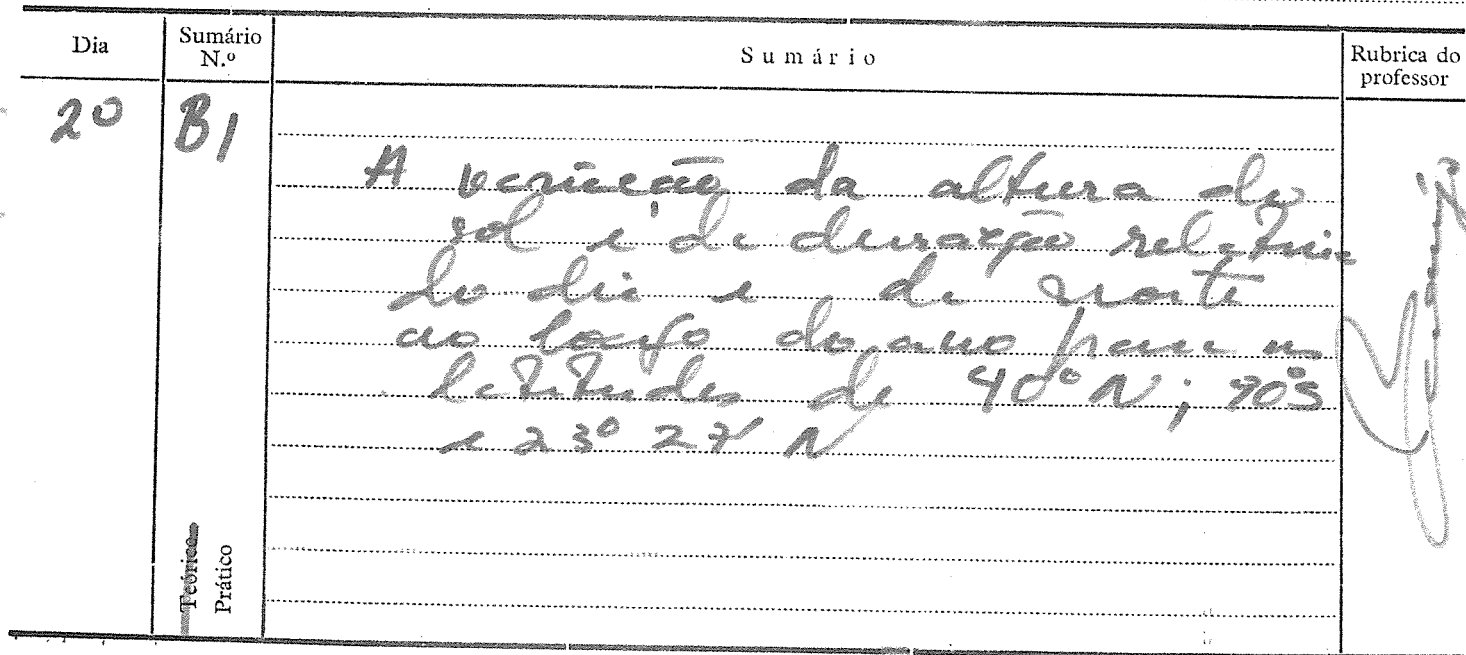 Dia
Sumário N.º
Sumário
Rubrica do professor
20
B1
A variação da altura do
sol e da duração relativa
do dia e da noite
ao longo do ano para as
latitudes de 40° N; 90°S
e 23° 27' N
Teórico
Prático